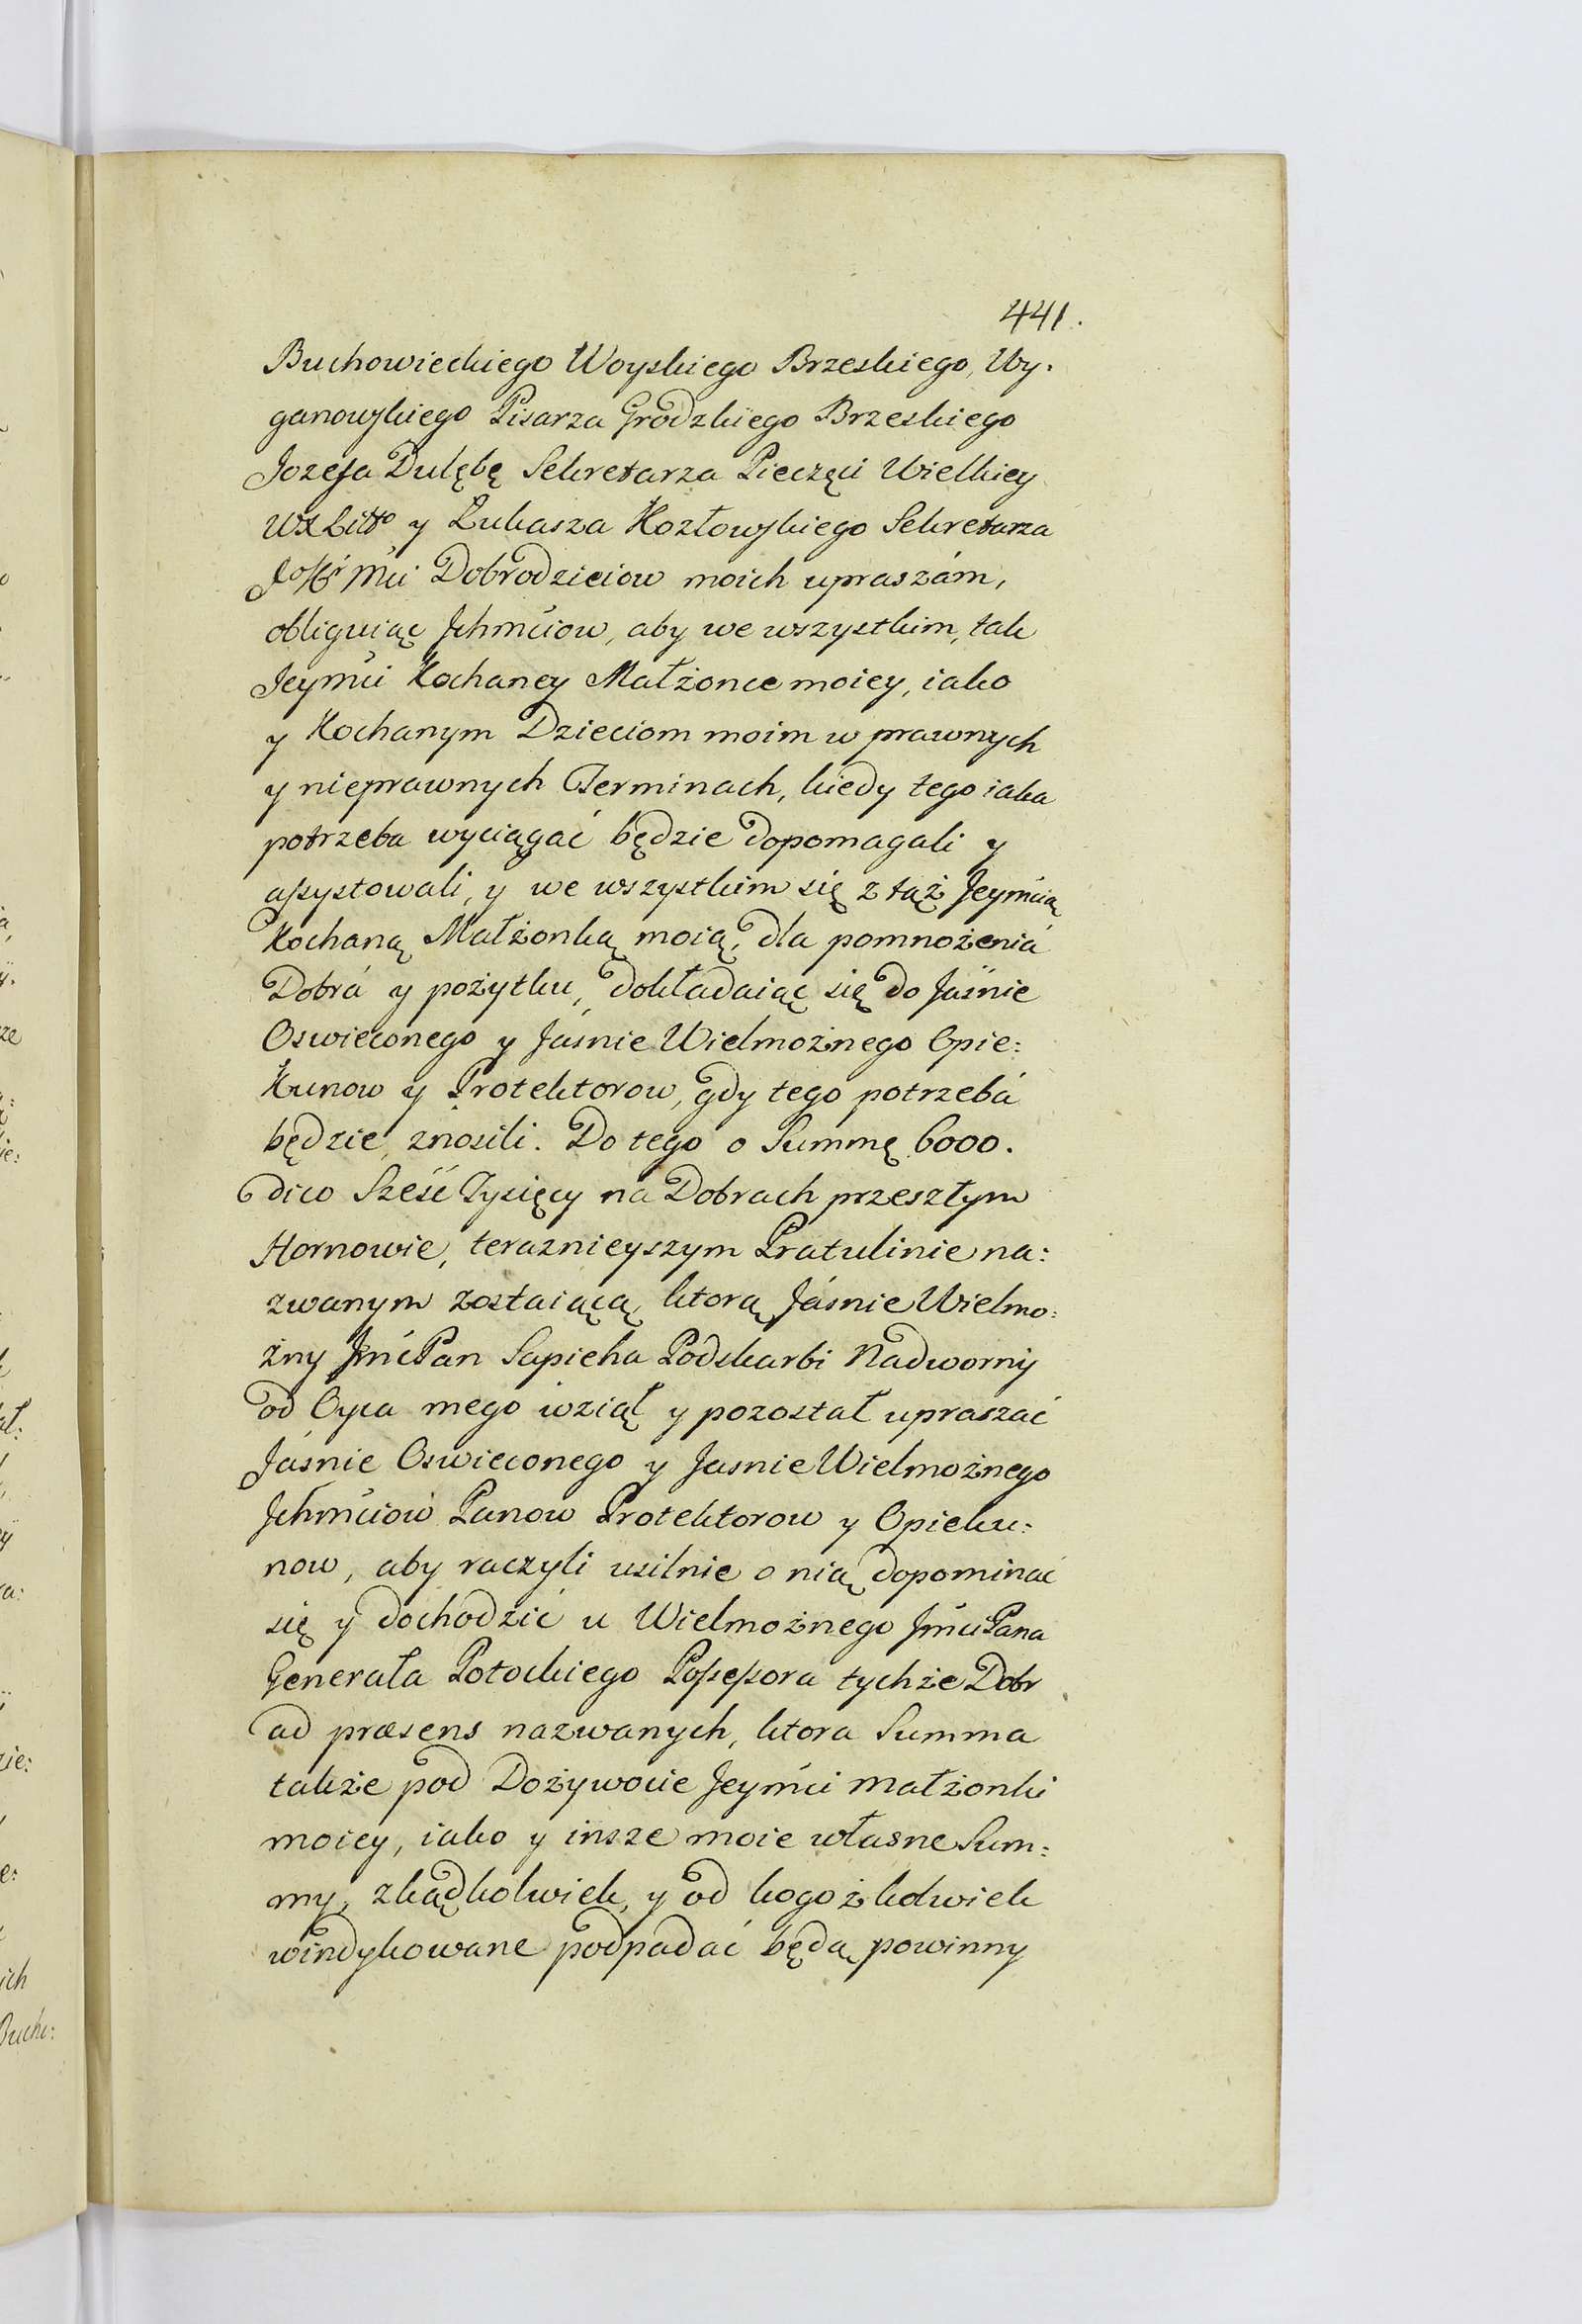 441.
Buchowieckiego Woyskiego Brzeskiego, Wy.
ganowskiego Pisarza Grodzkiego Brzeskiego
Jozefa Dulębę Sekretarza Pieczęci Wielkiey
WXLitto y Łukasza Kozłowskiego Sekretarza
JoKr Mci Dobrodzieiow moich upraszám,
obliguiąc Jchmciow, aby we wszystkim, tak
Jeymci Kochaney Małżonce moiey, iako
y Kochanym Dzieciom moim w prawnych
y nieprawnych Terminach, kiedy tego iaka
potrzeba wyciągać będzie dopomagali y
assystowali, y we wszystkim się z tąż Jeymcią
Kochaną Małżonką moią, dla pomnożeniá
Dobrá y pożytku, dokładaiąc się do Jaśnie
Oswieconego y Jáśnie Wielmożnego Opie:
kunow y Protektorow, gdy tego potrzebá
będzie, znosili. Do tego o Summę 6000.
dico Sześć Tysięcy na Dobrach przeszłym
Hornowie, teraznieyszym Pratulinie na:
zwanym zostaiącą, ktorą Jáśnie Wielmo:
żny JmćPan Sapieha Podskarbi Nadworny
od Oyca mego wziął y pozostał upraszać
Jáśnie Oswieconego y Jasnie Wielmożnego
Jchmciow Panow Protektorow y Opieku:
now, aby raczyli usilnie o nią dopominać
się y dochodzić u Wielmożnego JmciPana
Generała Potockiego Possessora tychże Dobr
ad præsens nazwanych, ktora Summa
także pod Dożywocie Jeymci małżonki
moiey, iako y insze moie własne Sum:
my, zkądkolwiek, y od kogożkolwiek
windykowane podpadać będą powinny